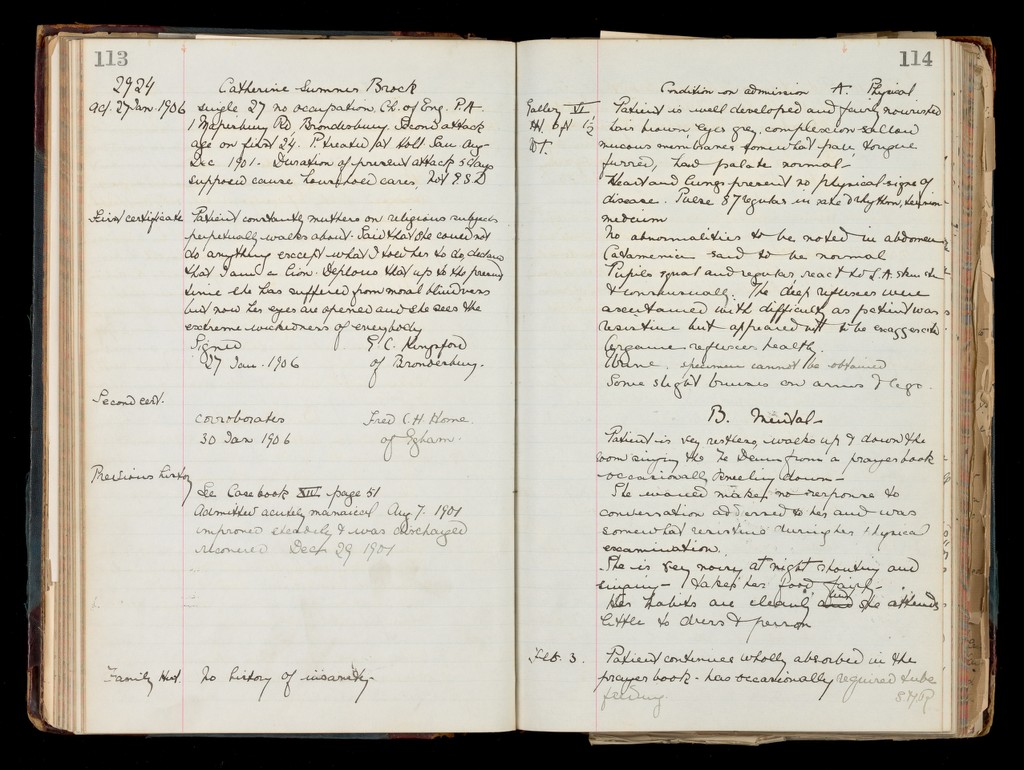 113
2924
Catherine Sumner Brock
ad. 27 Jan. 1906 single 27 no occupation. Ch. of Eng. P.A.
1 Mapesbury Rd Brondesbury. Second attack
age on first 24. P. treated at Holl. San. Aug-
Dec 1901. Duration of present attack 5 days
supposed cause household cares, not E.S.D
First certificate Patient constantly mutters on religious subjects
perpetually walks about. Said that she could not
do anything except what I told her to do, declares
that I am a Lion. Deplores that up to the present
time she has suffered from moral blindness
but now her eyes are opened and she sees the
extreme wickedness of everybody
Signed G. C. Kingsford
27 Jan. 1906 of Brondesbury.
Second cert.
corroborates Fred C. H. Horne
30 Jan 1906 of Egham.
Previous history
See Casebook XIII page 51
Admitted acutely maniacal Aug 7. 1901
improved steadily & was discharged
recovered Dec. 29 1901
Family Hist. No history of insanity.
114
Condition on admission A. Physical
Gallery VI Patient is well developed and fairly nourished
Ht. 5ft 1½ hair brown, eyes grey, complexion sallow
Wt. mucous membranes somewhat pale, tongue
furred, hard palate normal.
Heart and lungs present no physical signs of
disease. Pulse 87 regular in rate & rhythm, tension
medium
No abnormalities to be noted in abdomen
Catamenia said to be normal
Pupils equal and regular react to L. A.
& consensually. The deep reflexes were
ascertained with difficulty as patient was
resistive but appeared not to be exaggerated
Organic reflexes health.
Urine. specimen cannot be obtained
Some slight bruises on arms & legs.
B. Mental.
Patient is very restless, walks up & down the
room singing the Te Deum from a prayerbook
occasionally kneeling down.
She makes no response to
conversation addressed to her and was
somewhat resistive during her physical
examination.
She is very noisy at night shouting and
singing. takes her food fairly.
Her habits are cleanly and she attends
little to dress & person
Feb. 3. Patient continues wholly absorbed in the
prayer book. has occasionally required tube
feeding.